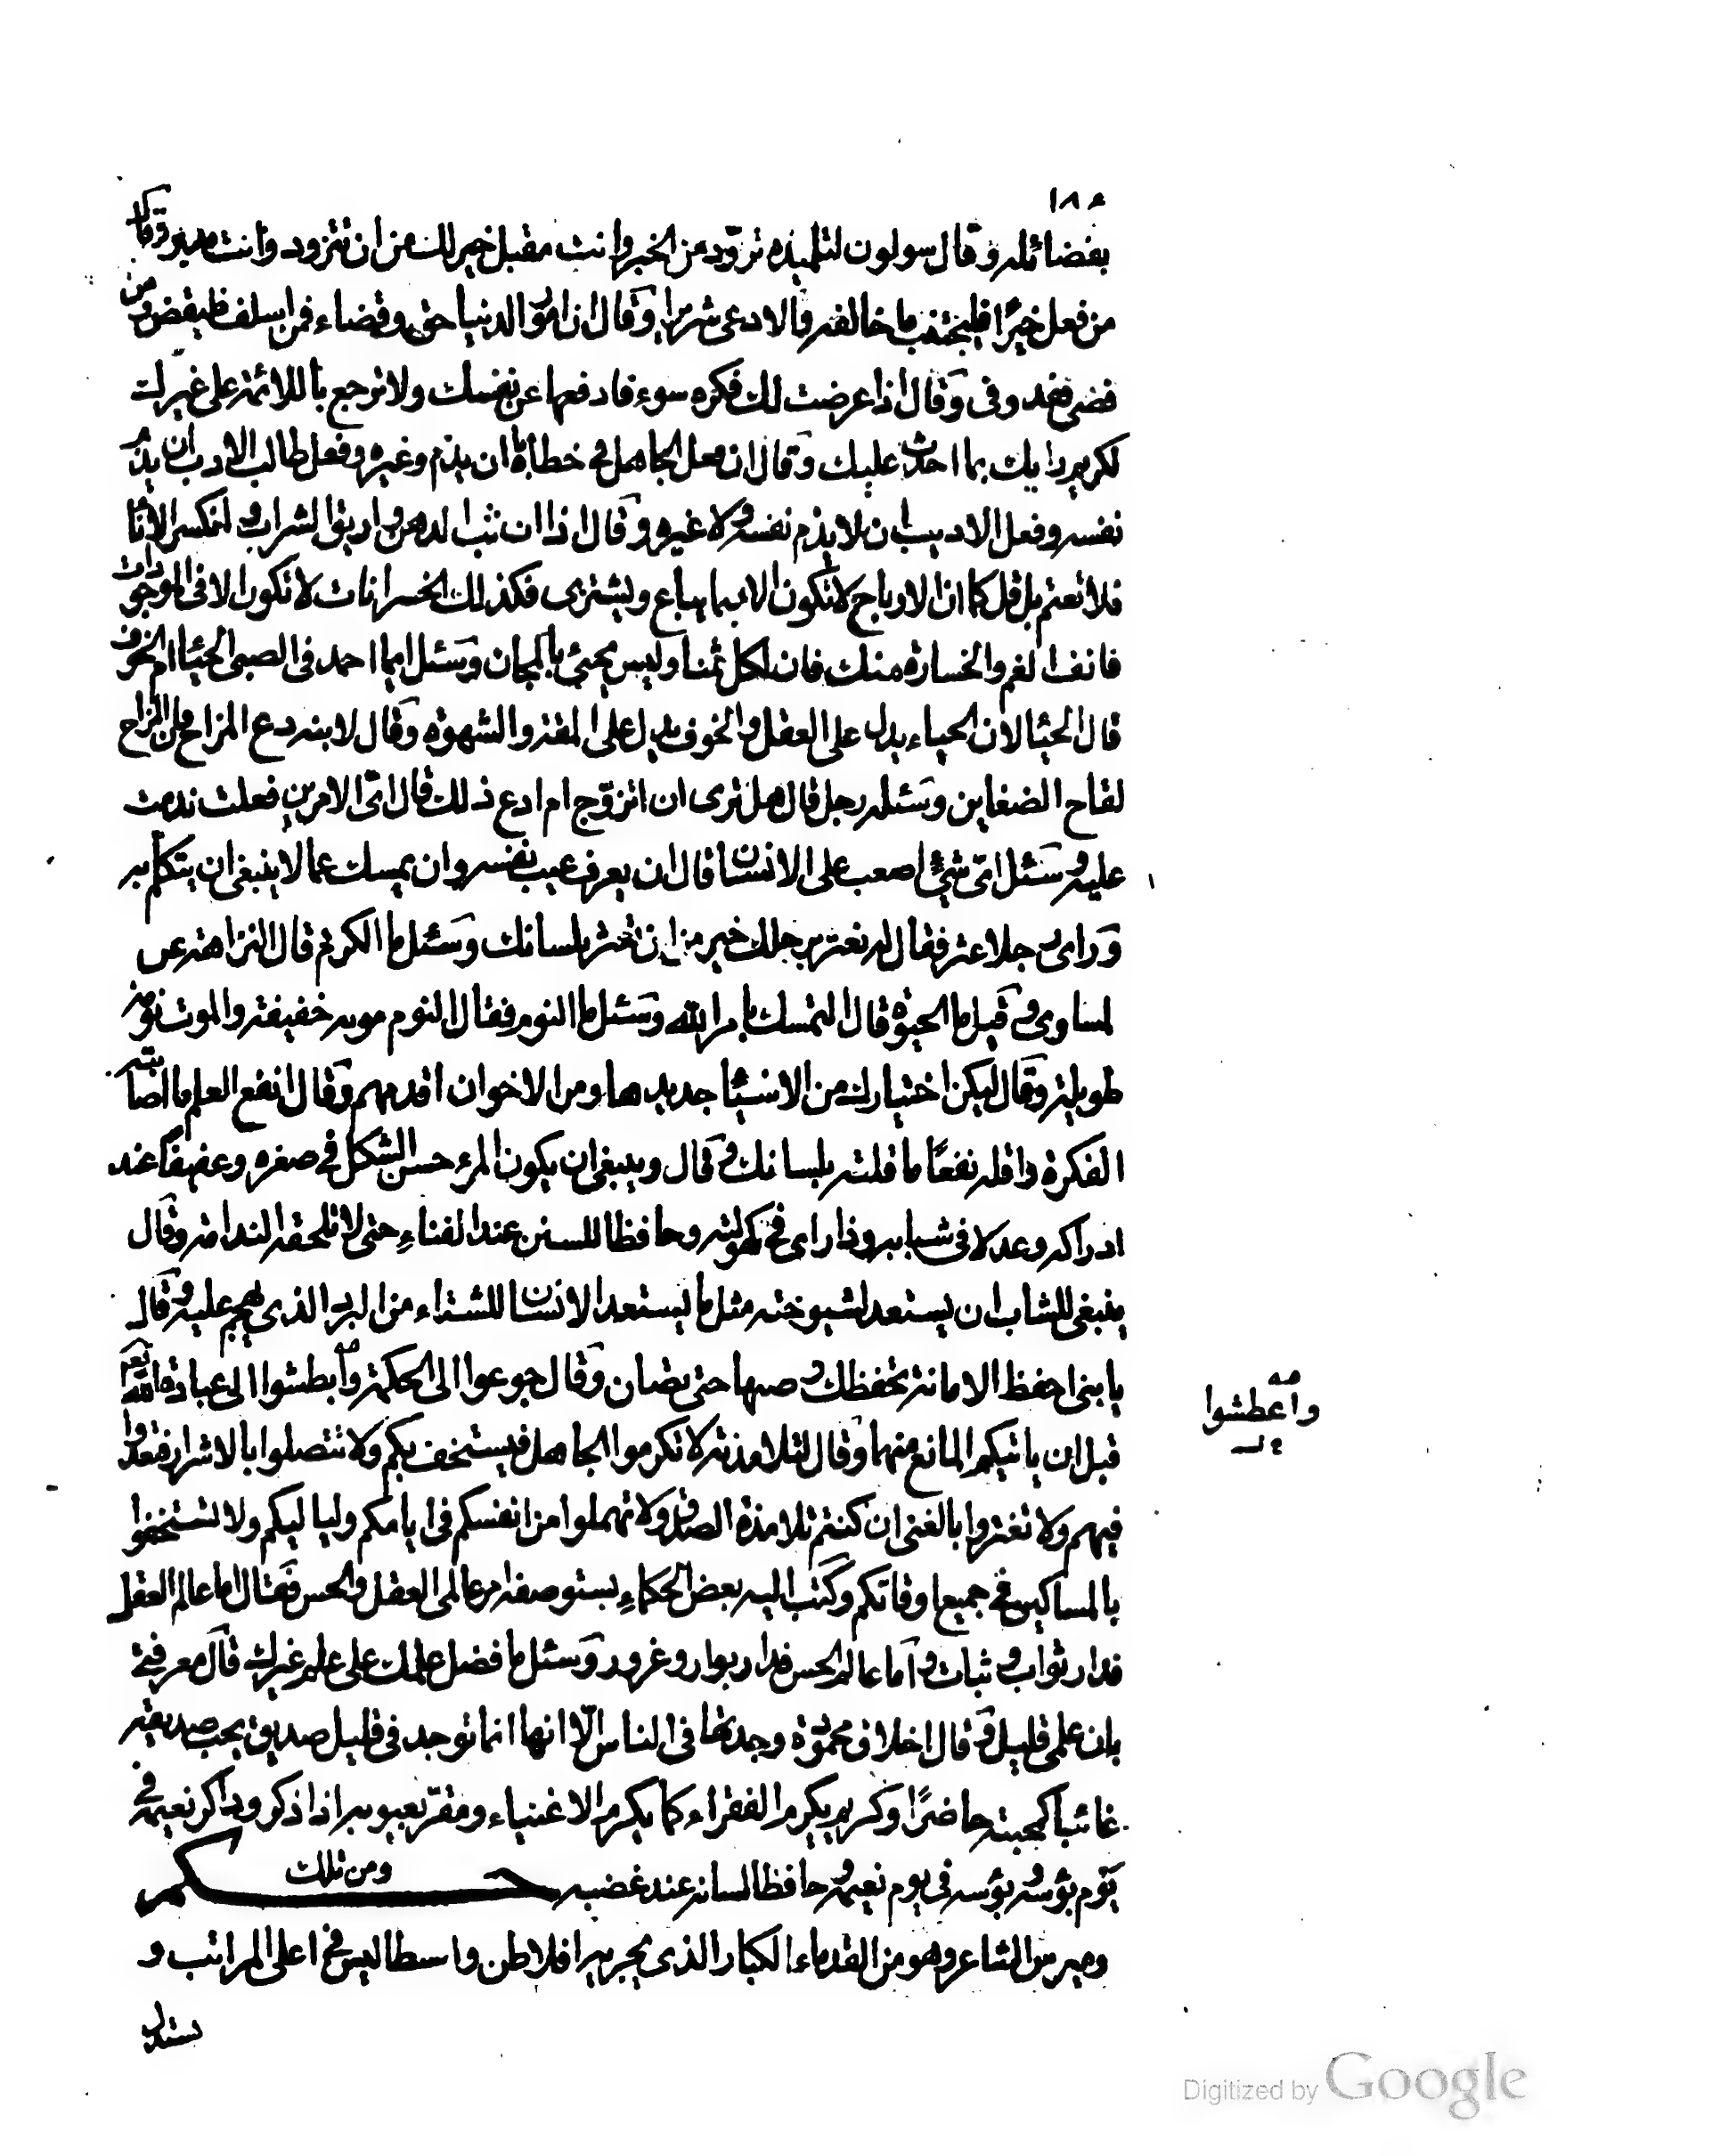 ١٨٤
بفضائله وقال سولون لتلميذه تزود من الخير وانت مقبل خير لك من ان تتزود وانت مدبر وقال
من فعل خيرا فليجتنب ما خالفه والا دعى شريرا وقال ان امور الدنيا حق وقضاء فمن اسلف فليقض ومن
قضى فقد وفى وقال اذا عرضت لك فكره سوء فادفعها عن نفسك ولا ترجع باللائمة على غيرك
لكن رايك بما احدث عليك وقال ان فعل الجاهل في خطائه ان يذم غيره وفعل طالب الادب ان يذم
نفسه وفعل الاديب ان لا يذم نفسه ولا غيره وقال اذا انصب الدهن واريق الشراب وانكسر الانا
فلا تغتم بل قل كما ان الارباح لا تكون الا بما يباع ويشترى فكذلك الخسرانات لا تكون الا فى الموجودات
فانف الغم والخسارة منك فان لكل ثمنا وليس يجئ بالمجان وسئل ايما احمد فى الصبى الحيا ام الخوف
قال الحيا لان الحياء يدل على العقل والخوف يدل على المقة والشهوة وقال لابنه دع المزاح فان المزاح
لقاح الضغاين وسئله رجل قال هل ترى ان اتزوج ام ادع ذلك قال اى الامرين فعلت ندمت
عليه وسئل اى شئ اصعب على الانسان قال ان يعرف عيب نفسه وان يمسك عما لا ينبغى ان يتكلم به
وراى رجلا عثر فقال له تعثر برجلك خير من ان تعثر بلسانك وسئل ما الكرم قال النزاهة عن
المساوى وقيل ما الحيوة قال التمسك بامر الله وسئل ما النوم فقال النوم موته خفيفة والموت نومة
طويلة وقال ليكن اختيارك من الاشيا جديدها ومن الاخوان اقدمهم وقال انفع العلم ما اصابته
الفكرة واقله نفعا ما قلته بلسانك وقال وينبغى ان يكون المرء حسن الشكل في صغره وعفيفا عند
ادراكه وعدلا فى شبابه وذا راى في كهولته وحافظا للسنن عند الفناء حتى لا تلحقه الندامة وقال
ينبغى للشاب ان يستعد لشيوخته مثل ما يستعد الانسان للشتاء من البرد الذى يهجم عليه وقال
يا بنى احفظ الامانة تحفظك وصنها حتى تصان وقال جوعوا الى الحكمة وابطشوا الى عبادة الله تعالى
واعطشوا
قبل ان ياتيكم المانع منهما وقال لتلامذته لا تكرموا الجاهل فيستخف بكم ولا تتصلوا بالاشرار فتعدوا
فيهم ولا تغتروا بالغنى ان كنتم تلامذة الصدق ولا تهملوا من انفسكم فى ايامكم ولياليكم ولا تستخفوا
بالمساكين في جميع اوقاتكم وكتب اليه بعض الحكماء يستوصفه امر عالمى العقل والحس فقال اما عالم العقل
فدار ثواب وثبات واما عالم الحس فدار بوار وغرور وسئل ما فضل علمك على علم غيرك قال معرفتى
بان علمى قليل وقال اخلاق محمودة وجدتها فى الناس الا انها انما توجد فى قليل صديق يحب صديقه
غائبا كمحبته حاضرا وكريم يكرم الفقراء كما يكرم الاغنياء ومقر بعيوبه اذا ذكر وذاكر نعيمه في
يوم بؤسه وبؤسه فى يوم نعيمه وحافظا لسانه عند غضبه ومن تلك حكم
وميرس الشاعر وهو من القدماء الكبار الذى يجريه افلاطن واسطاليس في اعلى المراتب و
يستدل
Digitized by Google